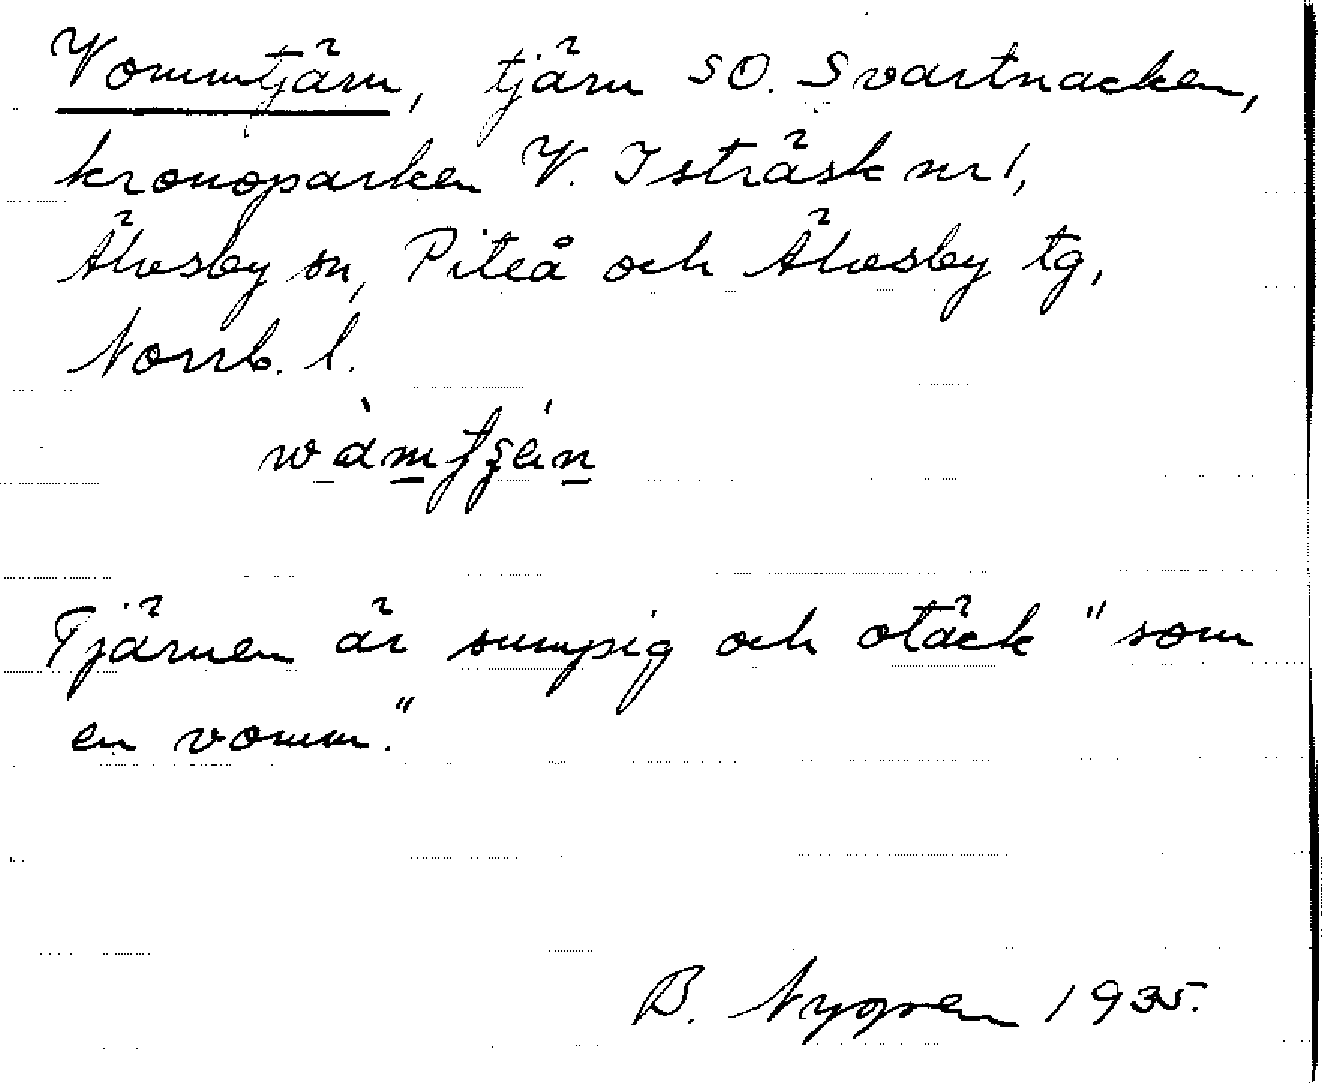 Vommtjärn, tjärn SO. Svartnacken,
kronoparken V. Isträsk nr 1,
Älvsby sn, Piteå och Älvsby tg,
Norrb. l.
Tjärnen är sumpig och otäck "som
en vomm."
B. Nygren 1935.